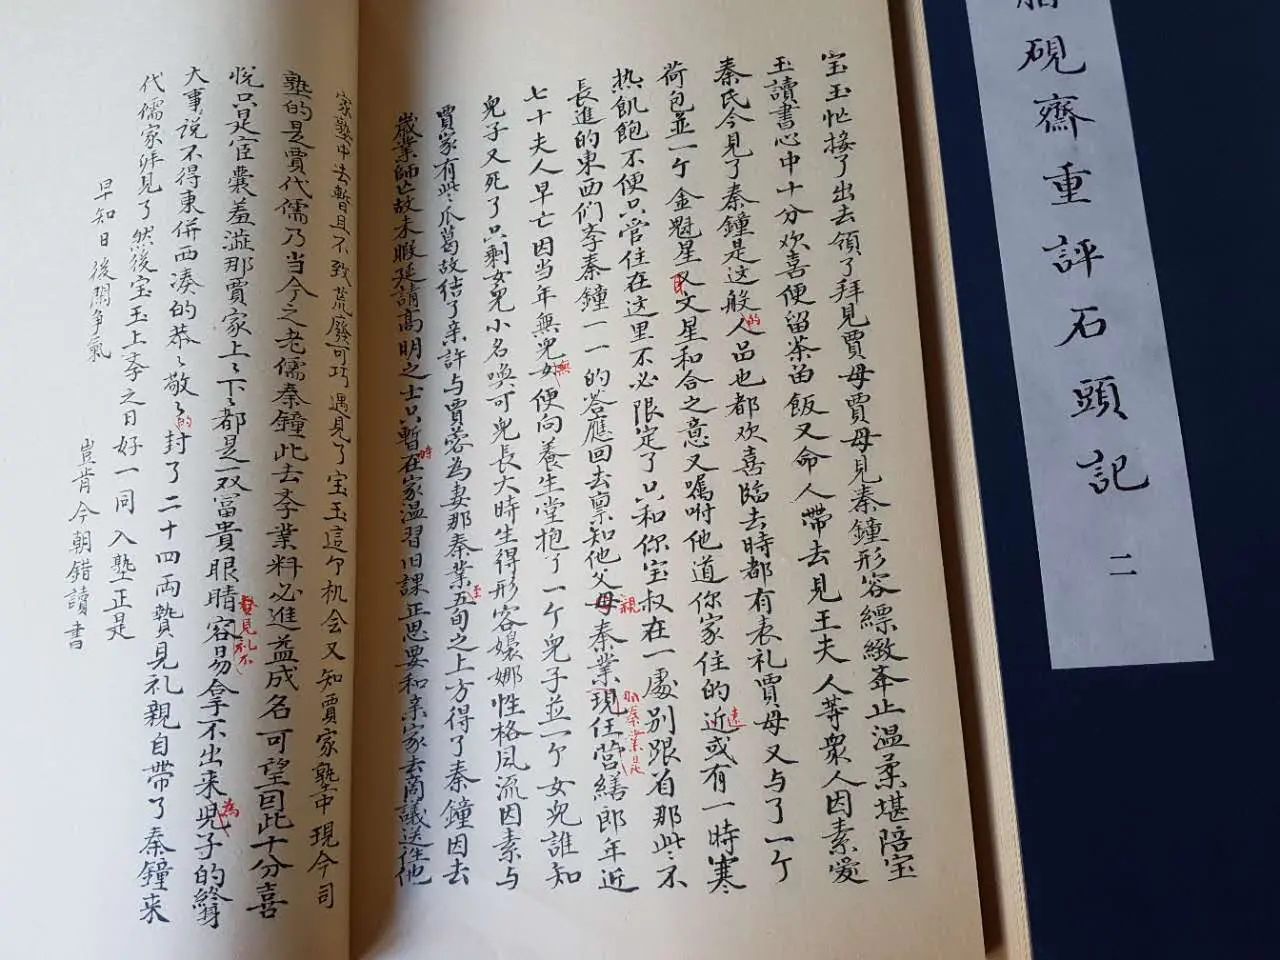 硯齋重評石頭記 二
宝玉忙接了出去領了拜見賈母賈母見秦鐘形容縹緻峯止温柔堪陪宝
玉讀書心中十分欢喜便留茶畄飯又命人帶去見王夫人等衆人因素愛
秦氏今見了秦鐘是这般人品也都欢喜臨去時都有表礼賈母又与了一个
的
荷包並一个金魁星又文星和合之意又嘱咐他道你家住的近或有一時寒
遠
热飢飽不便只管住在这里不必限定了只和你宝叔在一處别跟着那些不
長進的東西们孝秦鐘一一的答應回去禀知他父母秦業現任营缮郎年近
親
秦業是
七十夫人早亡因当年無兒女便向養生堂抱了一个兒子並一个女兒誰知
無
兒子又死了只剩女兒小名唤可兒長大時生得形容嬝娜性格風流因素与
賈家有些瓜葛故结了亲許与賈蓉為妻那秦業五旬之上方得了秦鐘因去
至
歲業師亡故未暇延請高明之士只暫在家温習旧課正思要和亲家去商議送往他
時
家塾中去暫且不致荒廢可巧遇見了宝玉這个机会又知賈家塾中現今司
塾的是賈代儒乃当今之老儒秦鐘此去孝業料必進益成名可望因此十分喜
悦只是宦囊羞澁那賈家上々下々都是一双富貴眼睛容易拿不出来兒子的終身
贄見礼不
為
大事說不得東併西凑的恭々敬々封了二十四両贄見礼親自帶了秦鐘来
的
代儒家拜見了然後宝玉上孝之日好一同入塾正是
早知日後閑争氣 豈肯今朝錯讀書